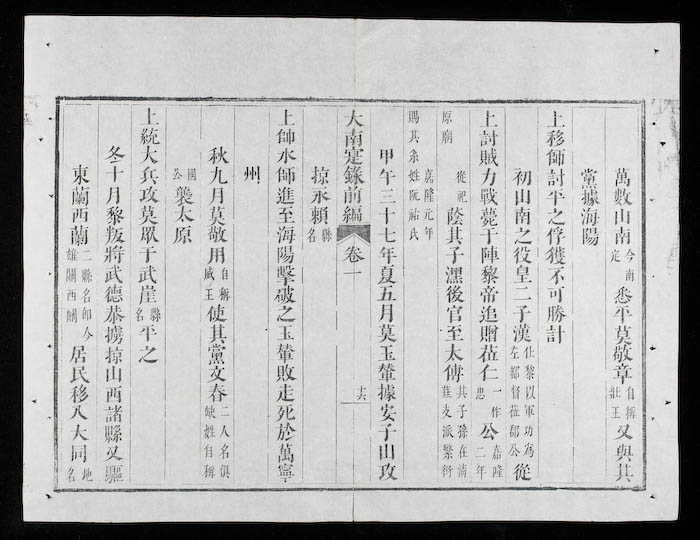 萬數山南今南定悉平莫敬章自稱壯王又與其
黨據海陽
上移師討平之俘獲不可勝計
初山南之役皇二子漢仕黎以軍功為左都督莅郡公從
上討賊力戰薨于陣黎帝追贈莅仁一作忠公嘉隆二年
從祀原廟蔭其子潶後官至太傅其子孫在清葩支派繁衍
嘉隆元年賜其系姓阮祐氏
甲午三十七年夏五月莫玉輦據安子山攻
大南寔錄前編 卷一 十六
掠永賴縣名
上帥水師進至海陽擊破之玉輦敗走死於萬寧
州
秋九月莫敬用自稱威王使其黨文春二人名俱缺姓自稱
國公襲太原
上統大兵攻莫眾于武崖縣名平之
冬十月黎叛將武德恭擄掠山西諸縣又驅
東蘭西蘭二縣名即今雄關西關居民移入大同地名